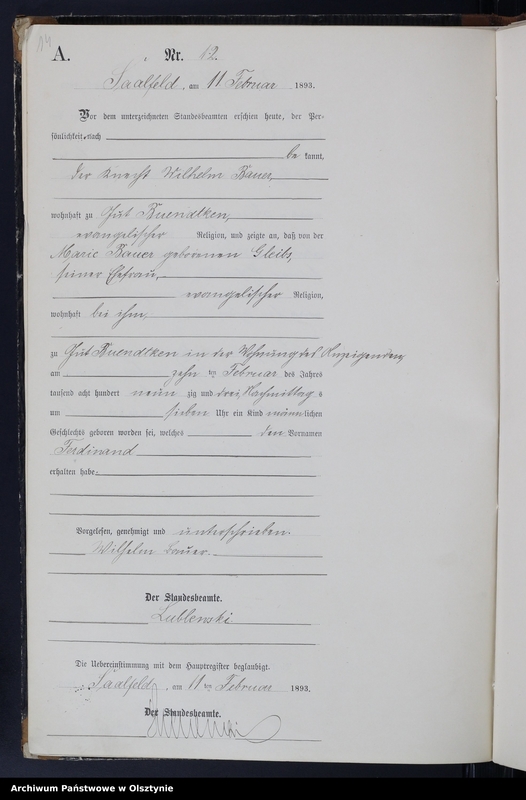 14
A. Nr. 12.
Saalfeld, am 11 Februar 1893.
Vor dem unterzeichneten Standesbeamten erschien heute, der Per-
sönlichkeit nach
be kannt,
der Knecht Wilhelm Bauer,
wohnhaft zu Gut Kuendtken,
evangelischer Religion, und zeigte an, daß von der
Marie Bauer geborenen Gleils,
seiner Ehefrau,
evangelischer Religion,
wohnhaft bei ihm,
zu Gut Kuendtken in der Wohnung des Anzeigenden,
am zehn ten Februar des Jahres
tausend acht hundert neun zig und drei, Nachmittag s
um sieben Uhr ein Kind männlichen
Geschlechts geboren worden sei, welches den Vornamen
Ferdinand
erhalten habe.
Vorgelesen, genehmigt und unterschrieben.
Wilhelm Bauer.
Der Standesbeamte.
Lublenski
Die Uebereinstimmung mit dem Hauptregister beglaubigt.
Saalfeld, am 11 ten Februar 1893.
Der Standesbeamte.
Archiwum Państwowe w Olsztynie